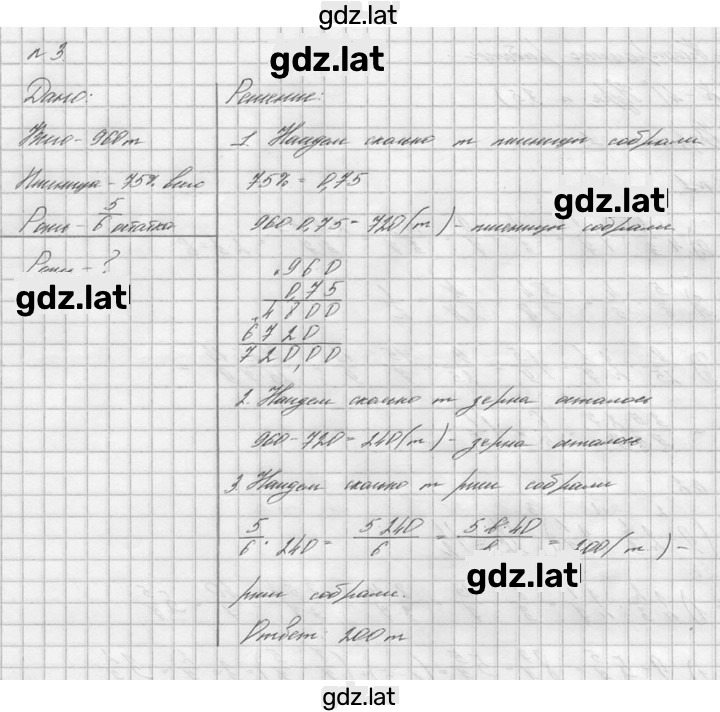 gdz.lat
gdz.lat
№ 3
Дано:
Решение:
Жито - 960 т
1. Найдем сколько т пшеницы собрали
Пшеница - 75% всего
75% = 0,75
gdz.lat
Рожь - 5/6 остатка
960·0,75 = 720 (т) - пшеницы собрали
Рожь - ?
960
0,75
gdz.lat
4800
6720
720,00
2. Найдем сколько т зерна осталось
960 - 720 = 240 (т) - зерна осталось
3. Найдем сколько т ржи собрали
5/6 · 240 = 5·240/6 = 5·6·40/6 = 200 (т) -
gdz.lat
ржи собрали.
Ответ: 200 т
gdz.lat